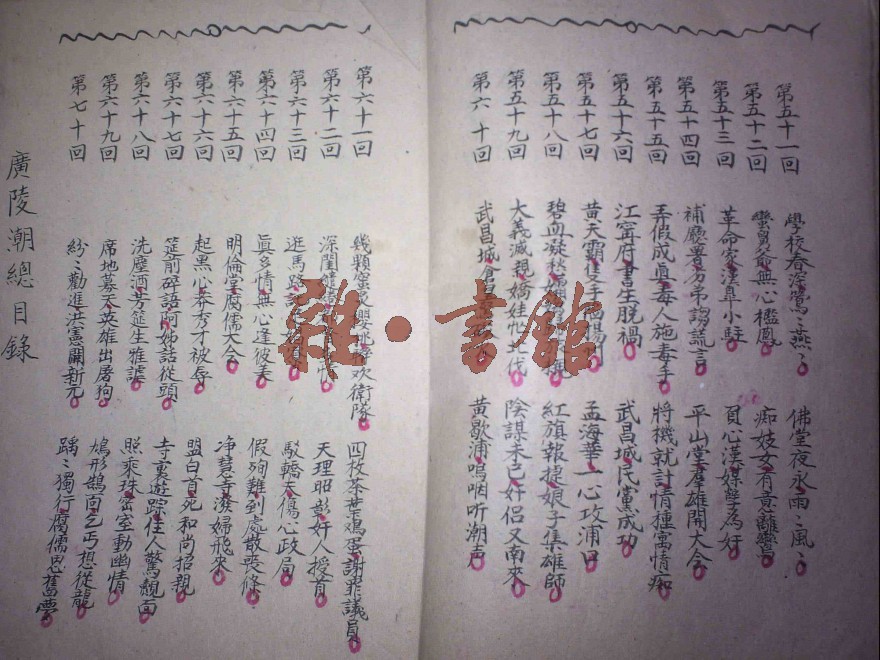 第五十一回 學校春深鶯〻燕〻 佛堂夜永雨〻風〻
第五十二回 無心檻鳳 痴妓女有意離鸞
第五十三回 革命家深草小駐 負心漢媒孽為奸
第五十四回 補廳署 謅謊言 平山堂羣雄開大会
第五十五回 弄假成真毒人施毒手 將機就計情種寄情痴
第五十六回 江寧府書生脫禍 武昌城民黨成功
第五十七回 黃天霸隻手 孟海華一心攻浦口
第五十八回 碧血凝 紅旗報捷娘子集雄師
第五十九回 大義滅親嬌娃忙北伐 陰謀未已奸侶又南來
第六十回 武昌城 黃歇浦嗚咽听潮声
第六十一回 幾顆蜜 欢衛隊 四枚茶葉鸡蛋謝罪議員
第六十二回 深閨 天理昭彰奸人授首
第六十三回 逛馬路 駁轎夫傷心政局
第六十四回 真多情無心逢彼美 假殉難到處散喪條
第六十五回 明倫堂腐儒大会 净慧寺潑婦飛來
第六十六回 起黑心莽秀才被辱 盟白首死和尚招親
第六十七回 筵前碎語阿姊話從頭 寺裏遊踪佳人驚覿面
第六十八回 洗塵酒芳筵生雅謔 照乘珠密室動幽情
第六十九回 席地幕天英雄出屠狗 鳩形鵠面乞丐想從龍
第七十回 紛〻勸進洪憲開新元 踽〻獨行腐儒思舊夢
廣陵潮總目錄
雜·書館